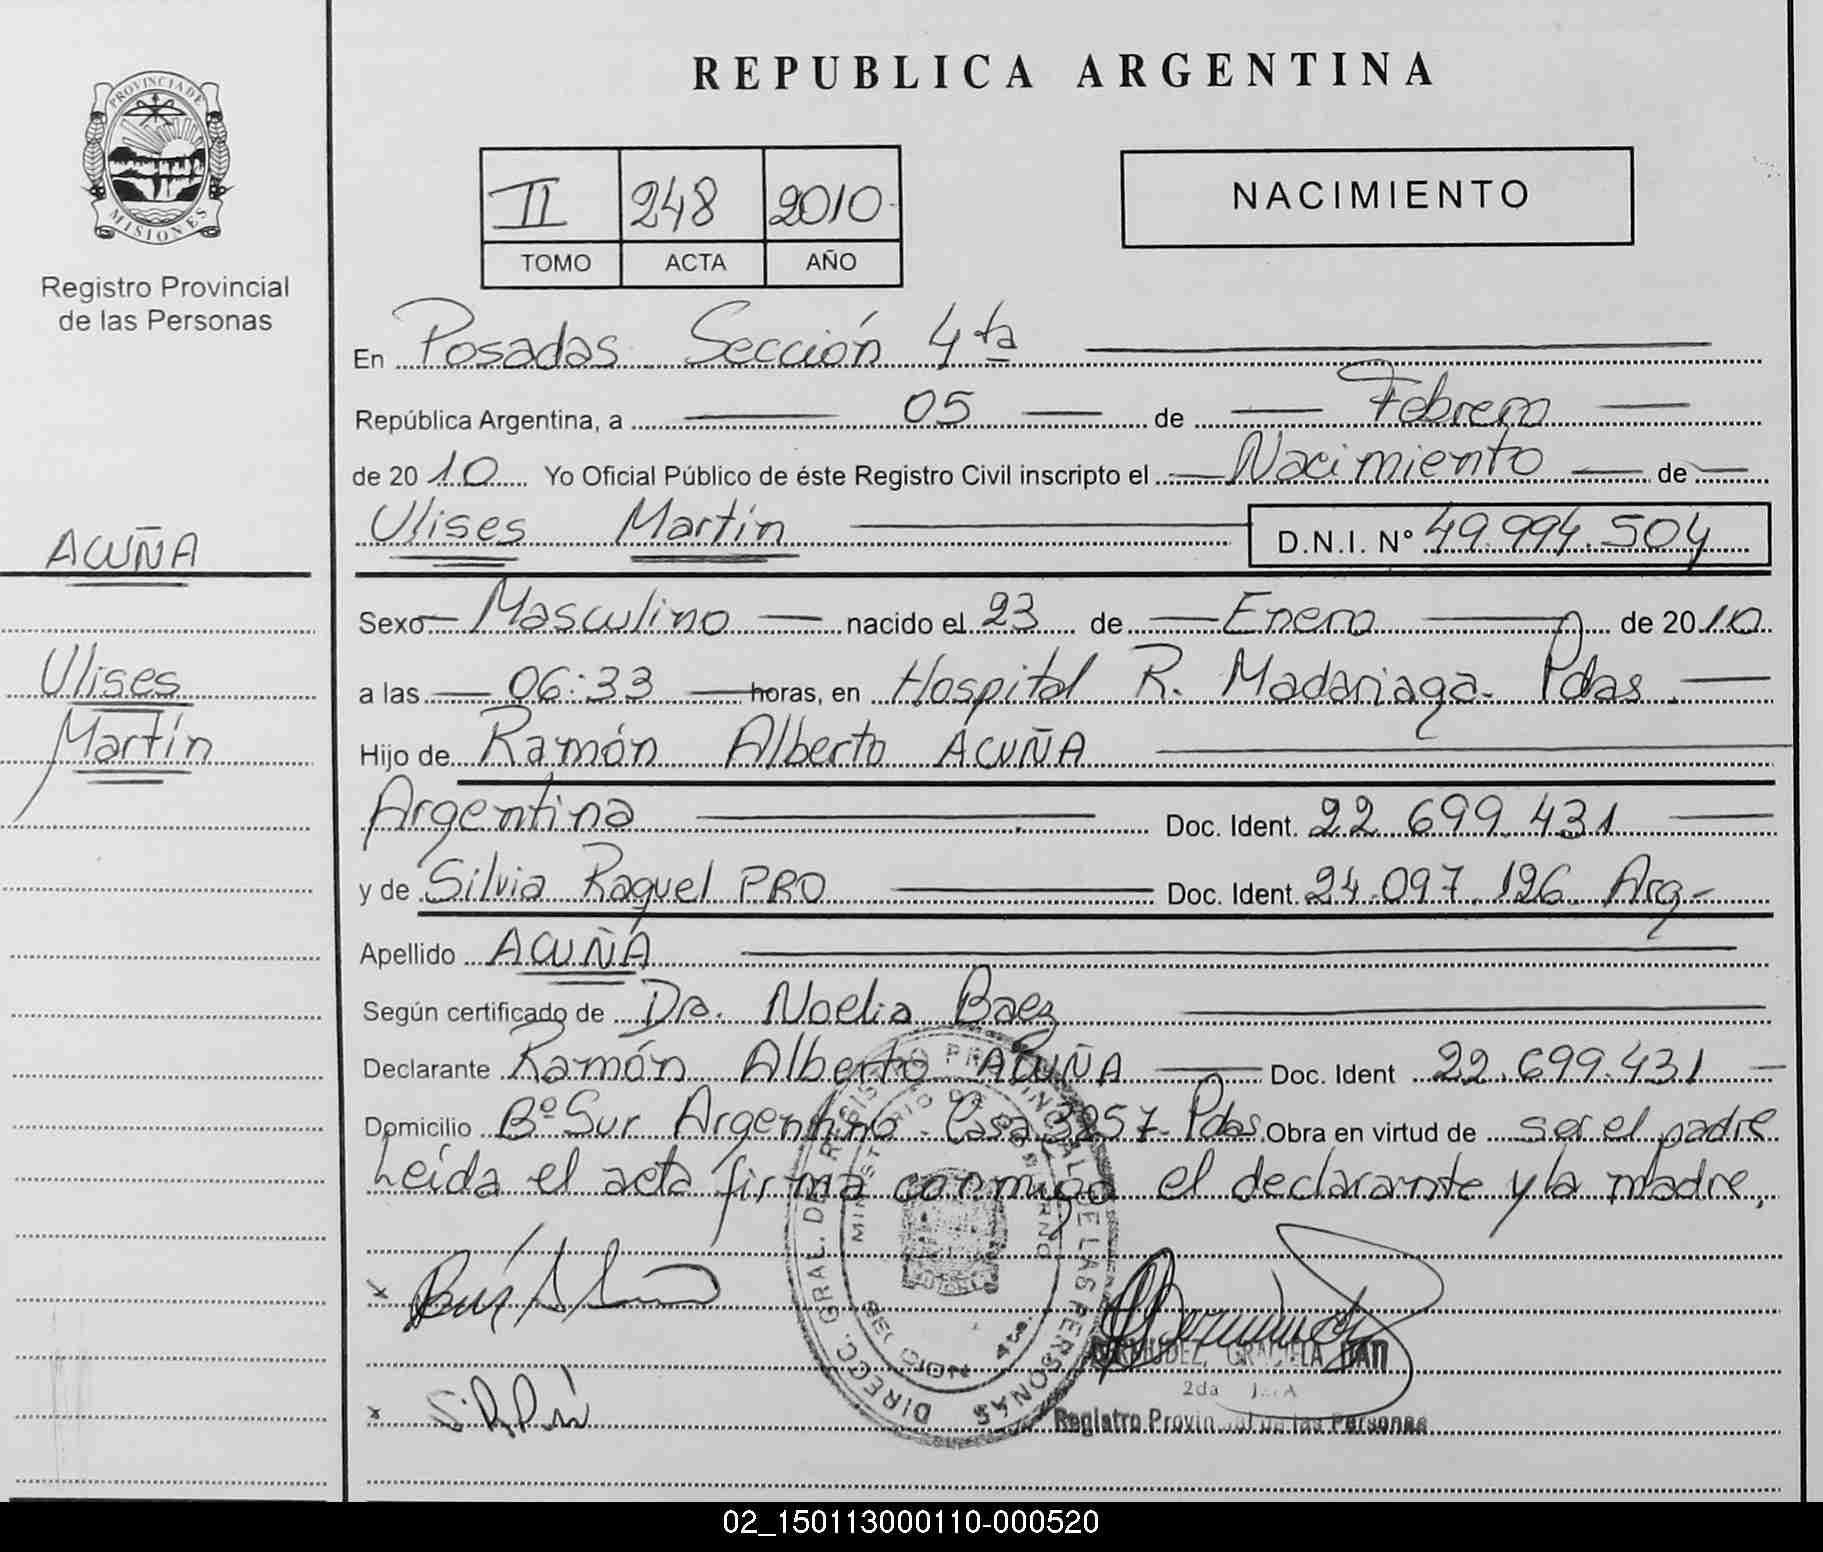 PROVINCIA DE
MISIONES
Registro Provincial
de las Personas
ACUÑA
Ulises
Martín
REPUBLICA ARGENTINA
II 248 2010
TOMO ACTA AÑO
NACIMIENTO
En Posadas Sección 4ta
República Argentina, a 05 de Febrero
de 2010 Yo Oficial Público de éste Registro Civil inscripto el Nacimiento de
Ulises Martín D.N.I. N° 49.994.504
Sexo Masculino nacido el 23 de Enero de 2010
a las 06:33 horas, en Hospital R. Madariaga. Pdas.
Hijo de Ramón Alberto ACUÑA
Argentina Doc. Ident. 22.699.431
y de Silvia Raquel PRO Doc. Ident. 24.097.126. Arg-
Apellido ACUÑA
Según certificado de Dra. Noelia Baez
Declarante Ramón Alberto ACUÑA Doc. Ident 22.699.431
Domicilio Bº Sur Argentino. Casa 3257. Pdas. Obra en virtud de ser el padre
Leída el acta firma conmigo el declarante y la madre,
DIRECC. GRAL. DEL REGISTRO PROVINCIAL DE LAS PERSONAS
MINISTERIO DE GOBIERNO
BERMUDEZ, GRACIELA
2da
Registro Provincial de las Personas
02_150113000110-000520